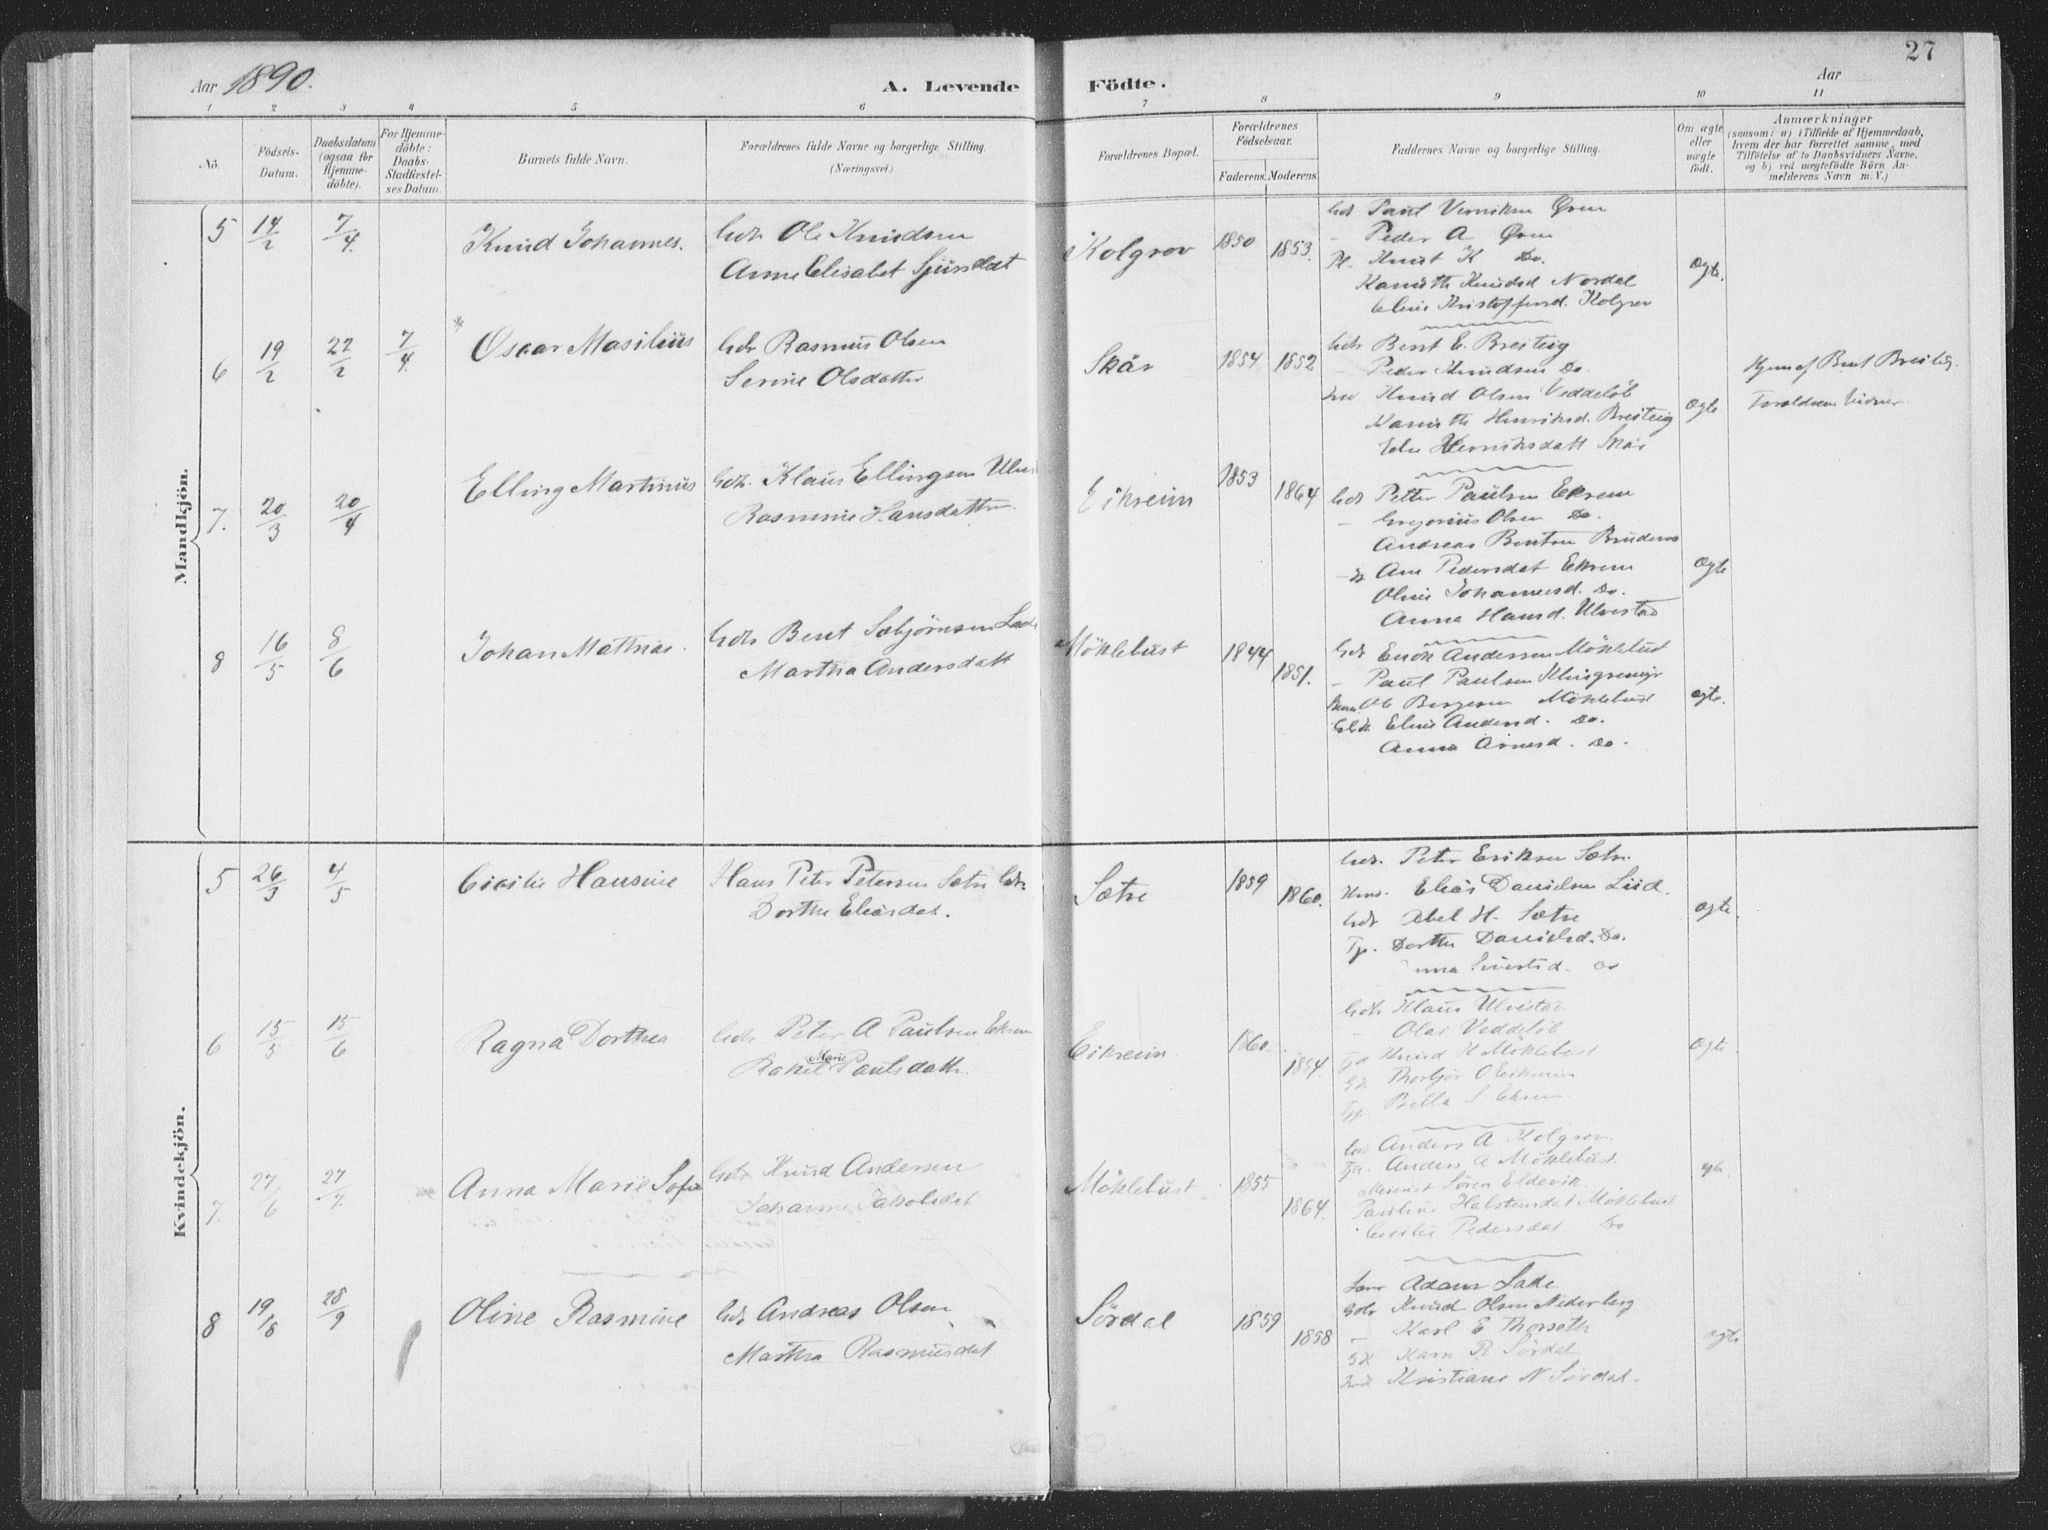 27
Aar 1890.
A. Levende Födte.
Aar
1 2 3 4 5 6 7 8 9 10 11
Nö.
Födsels-Datum.
Daabsdatum (ogsaa for Hjemme-döbte).
For Hjemme-döbte: Daabs-Stadfestel-ses Datum.
Barnets fulde Navn.
Forældrenes fulde Navne og borgerlige Stilling.
(Næringsvei.)
Forældrenes Bopæl.
Forældrenes Födselsaar.
Faderens. Moderens.
Faddernes Navne og borgerlige Stilling.
Om ægte eller uægte födt.
Anmærkninger
(saasom: a) i Tilfælde af Hjemmedaab, hvem der har forrettet samme, med Tilföielse af to Daabsvidners Navne, og b) ved uægtefödte Börn Anmelderens Navn m. V.)
Mandkjön.
5 14/2 7/4. Knud Johannes. Gdr Ole Knudsen
Anne Elisabet Sjursdatt
Kolgrov 1850 1853.
Gdr Paul Øren
- Peder A Øren
Knut K Do.
Knudsd Nordal
Kristoffersd. Kolgrov
ægte.
6 19/2 22/2 7/4. Oscar Masilius Gdr Rasmus Olsen
Serine Olsdatter
Skår 1854 1852
Gdr Bent E. Breiteig
- Peder Knudsen Do.
Knud Olsen Veddeløb
Henriksd. Breiteig
Henriksdatt Skår
ægte
Hjem af Bent Breiteig.
Forældrene Vidner.
7. 20/3 20/4 Elling Martinus Gdr. Klaus Ellingsen
Rasmine Hansdatter.
Eikreim 1853 1864
Gdr Petter Paulsen Ekrem
- Gregorius Olsen Do.
Andreas Bentsen
Ane Pedersdat Ekrem
Oline Johannesd. Do.
Anna Hansd. Ulvestad
ægte
8 16/5 8/6 Johan Mathias. Gdr Bent Lade
Martha Andersdatt
Möklebust 1844 1851.
Gdr Andersen Möklebust
- Paul Paulsen
Ole Möklebust
Eline Andersd. Do.
Anna Arnesd. Do.
ægte.
Kvindekjön.
5 26/3 4/5 Cicilie Hansine Hans Peter Petersen Sætre Gdr
Dorthe Eliasdat.
Sætre 1859 1860.
Gdr. Peter Eriksen Sætre.
Elias Danielsen Liid.
Gdr Abel H. Sætre
Tp. Dorthe Danielsd. Do.
Do
ægte.
6 15/5 15/6 Ragna Dorthea Gdr Peter A Paulsen Ekrem
Marie
Rakel Paulsdatt.
Eikreim. 1860. 1854.
Gdr Klaus Ulvestad
- Olai Veddeløb
Knud K Möklebust
O Eikreim
S Ekrem
ægte
7. 27/6 27/7. Anna Marie Sofie Gdr Knud Andersen
Johanne Jakobsdat
Möklebust 1855 1864.
Anders A Kolgrov
Anders A Möklebust
Søren Eldevik.
Pauline Halstensdat Möklebust
Cecilie Pedersdat Do
8 19/8 28/9 Oline Rasmine Gdr Andreas Olsen
Martha Rasmusdat
Sördal 1859 1858
Adam Lade
Gdr Knud Olsen Nederberg
- Karl E Thorseth
Karn R Sørdal
Kristiane N Sørdal.
ægte